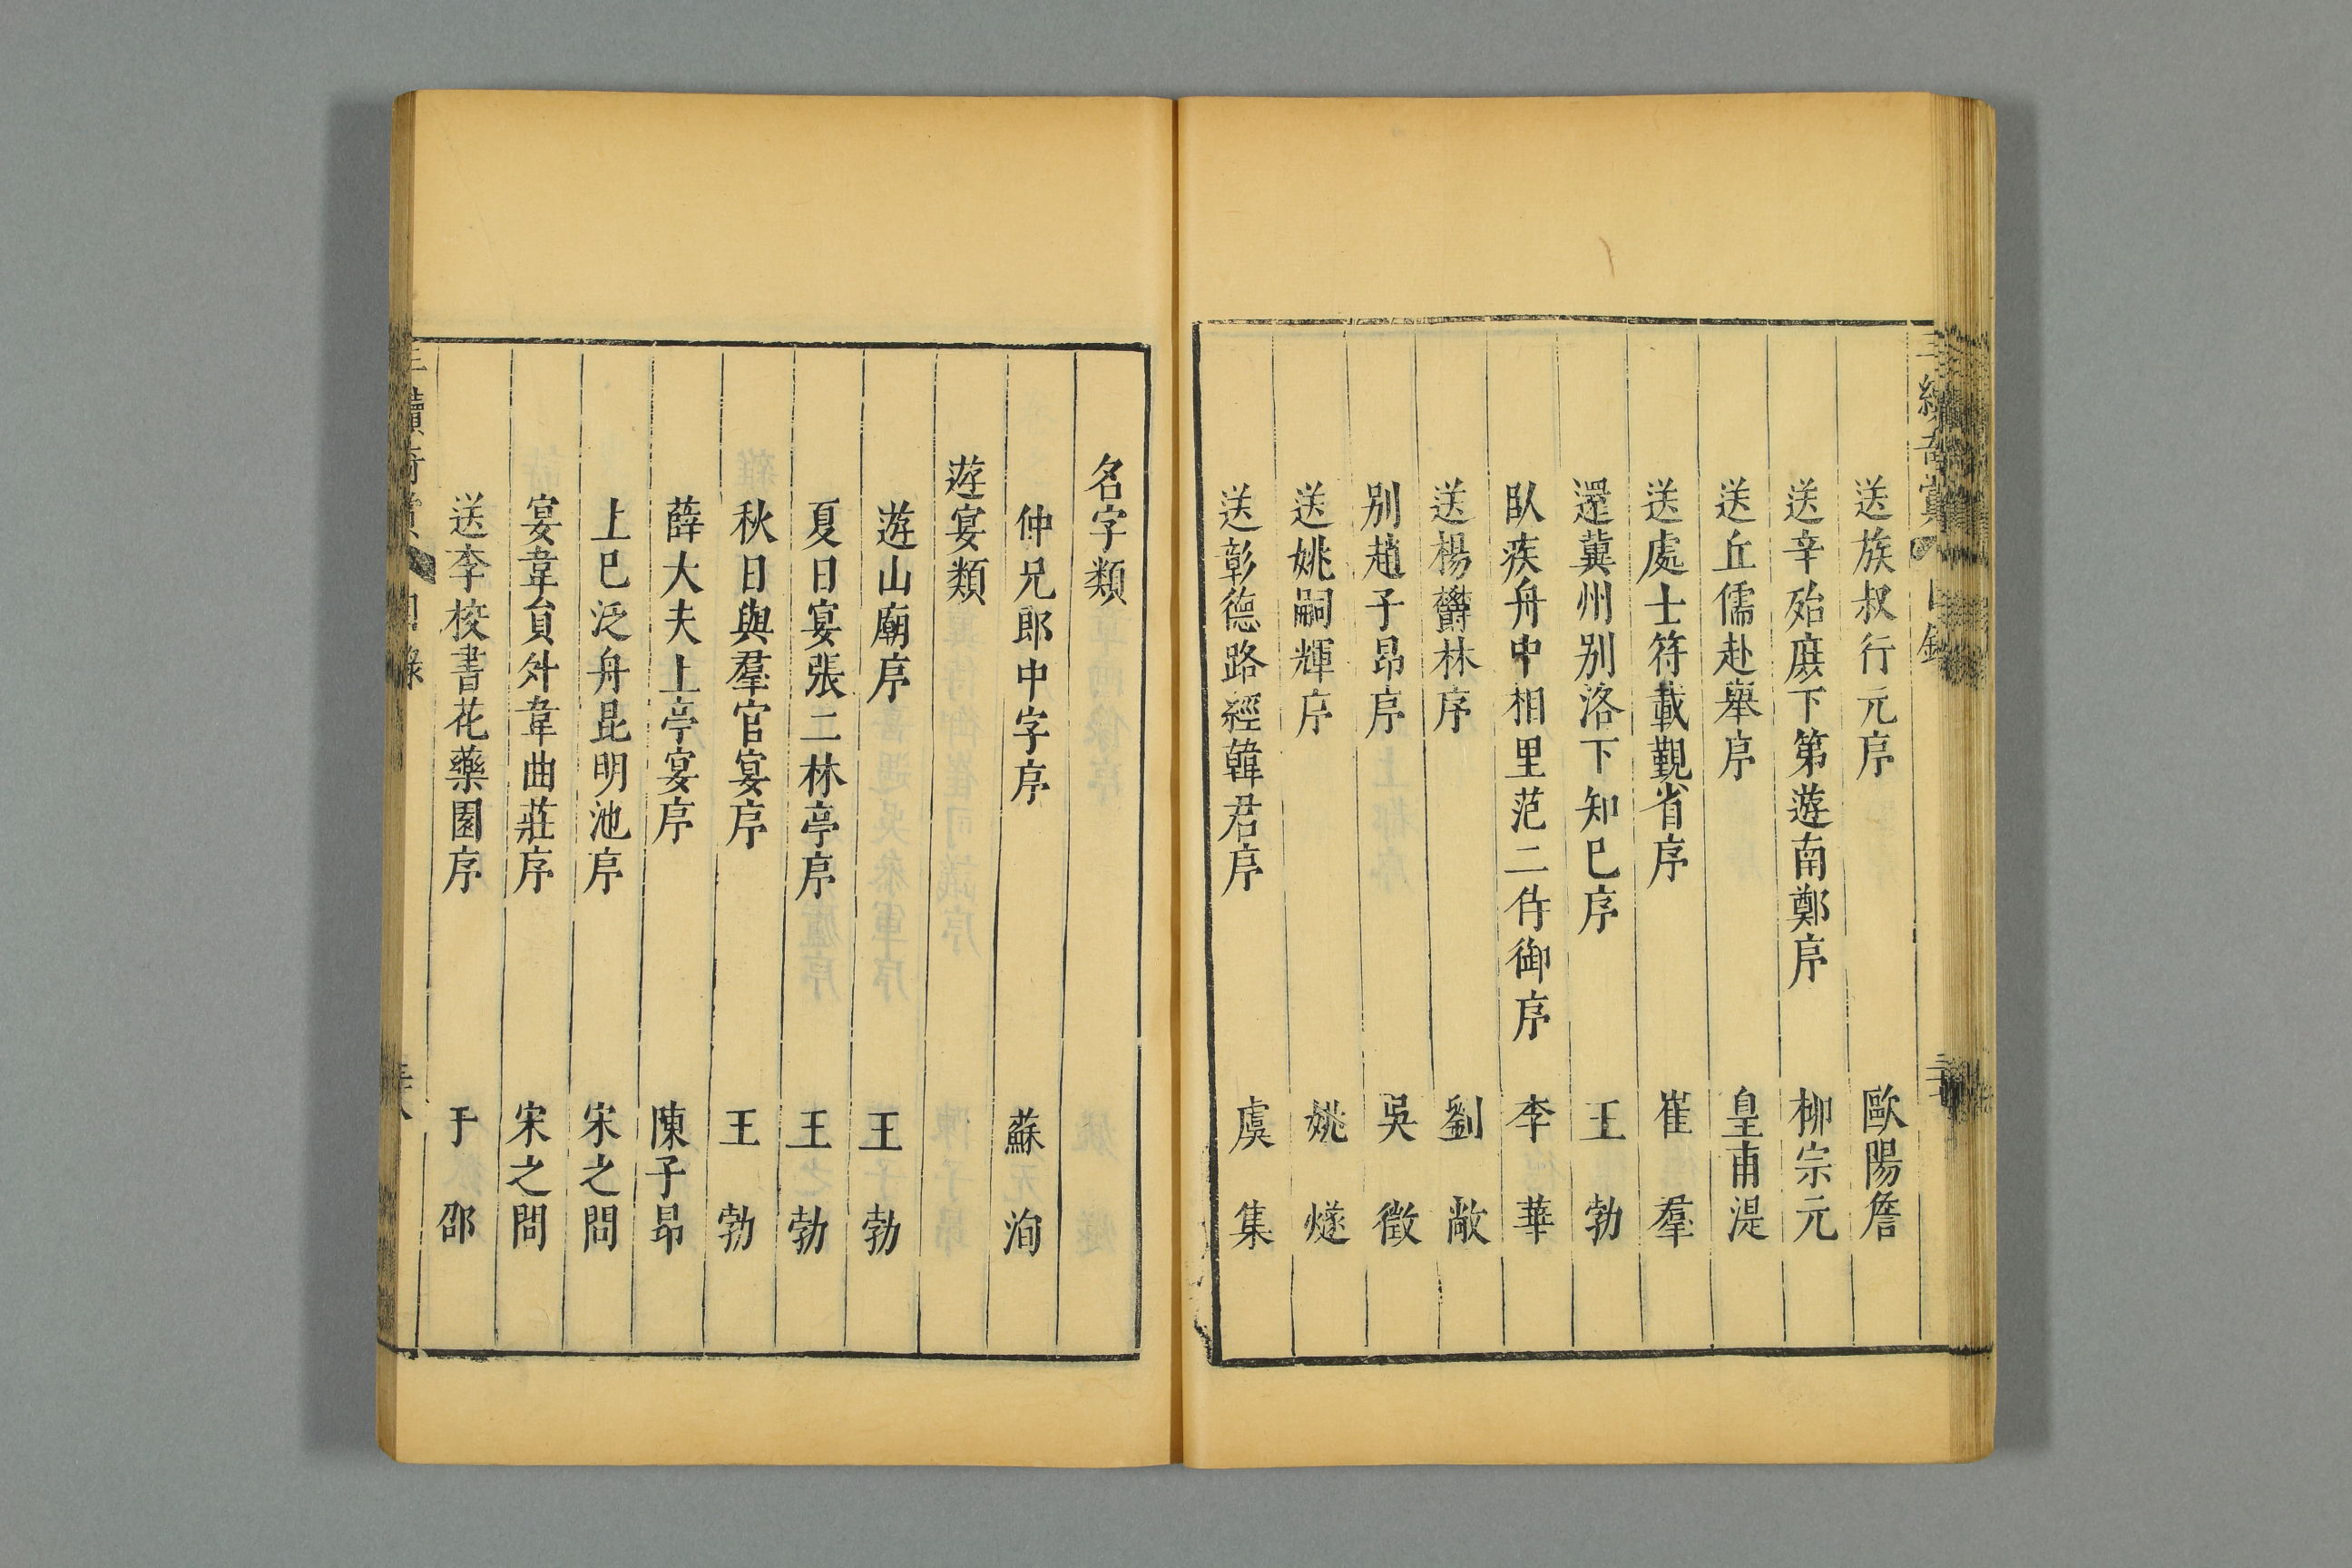 送族叔行元序 歐陽詹
送辛殆庻下第遊南鄭序 柳宗元
送丘儒赴舉序 皇甫湜
送處士符載覲省序 崔羣
還冀州別洛下知巳序 王勃
臥疾舟中相里范二侍御序 李華
送楊欝林序 劉敞
別趙子昂序 吳徵
送姚嗣輝序 姚燧
送彰德路經韓君序 虞集
名字類
仲兄郎中字序 蘇洵
遊宴類
遊山廟序 王勃
夏日宴張二林亭序 王勃
秋日與羣官宴序 王勃
薛大夫上亭宴序 陳子昂
上巳泛舟昆明池序 宋之問
宴韋員外韋曲莊序 宋之問
送李校書花藥園序 于邵